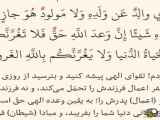 ي والِدٌ عَن وَلَدِهِ وَلا مَولودٌ هُوَ جازٍ
شَيئًا إِنَّ وَعدَ اللَّهِ حَقٌّ فَلا تَغُرَّنَّكُم
حَياةُ الدُّنيا وَلا يَغُرَّنَّكُم بِاللَّهِ الغَرورُ
دم! تقوای الهی پیشه کنید و بترسید از روزی
فر اعمال فرزندش را تحمّل می‌کند، و نه فرزند
(اعمال) پدرش را به یقین وعده الهی حق است
دگانی دنیا شما را بفریبد، و مبادا (شیطان)